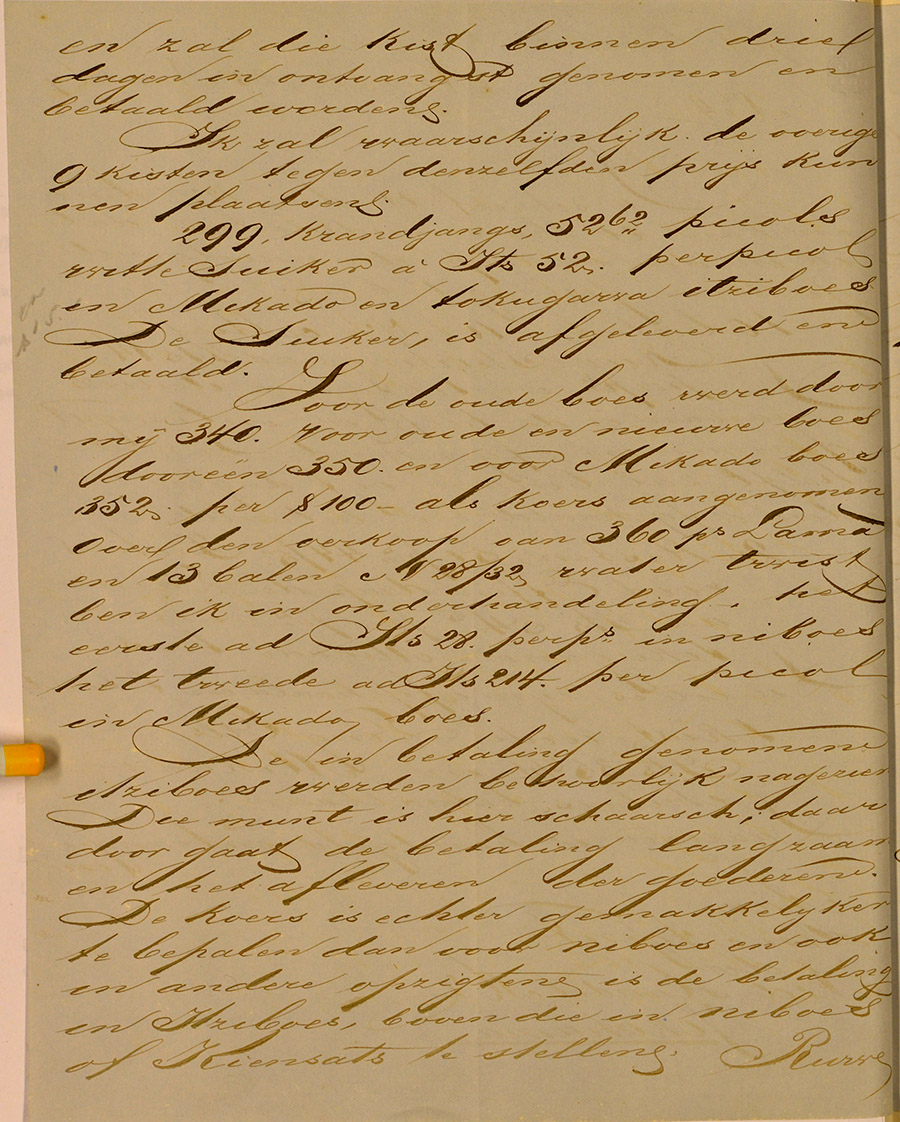 en zal die kist binnen drie
dagen in ontvangst genomen en
betaald worden.
Ik zal waarschijnlijk de overige
9 kisten tegen denzelfden prijs kun
nen plaatsen.
299, krandjangs, 52 62 picols
witte Suiker à Its 52. per picol
in Mikado en tokugawa itziboes
De Suiker, is afgeleverd en
betaald.
Voor de oude boes werd door
mij 340. voor oude en nieuwe boes
dooreén 350. en voor Mikado boes
352. per $100 - als koers aangenomen
Over den verkoop van 360 ps Lama
en 13 balen N 28/32 water twist
ben ik in onderhandeling. het
eerste ad Its 28. per ps in niboes
het tweede ad Its 214. per picol
in Mikado boes.
De in betaling genomen
itziboes werden behoorlijk nagezien
Die munt is hier schaarsch; daar
door gaat de betaling langzaam
en het afleveren der goederen.
De koers is echter gemakkelyker
te bepalen dan voor niboes en ook
in andere opzigten is de betaling
in Itziboes, boven die in niboes
of Kiensats te stellen.
Ruwe